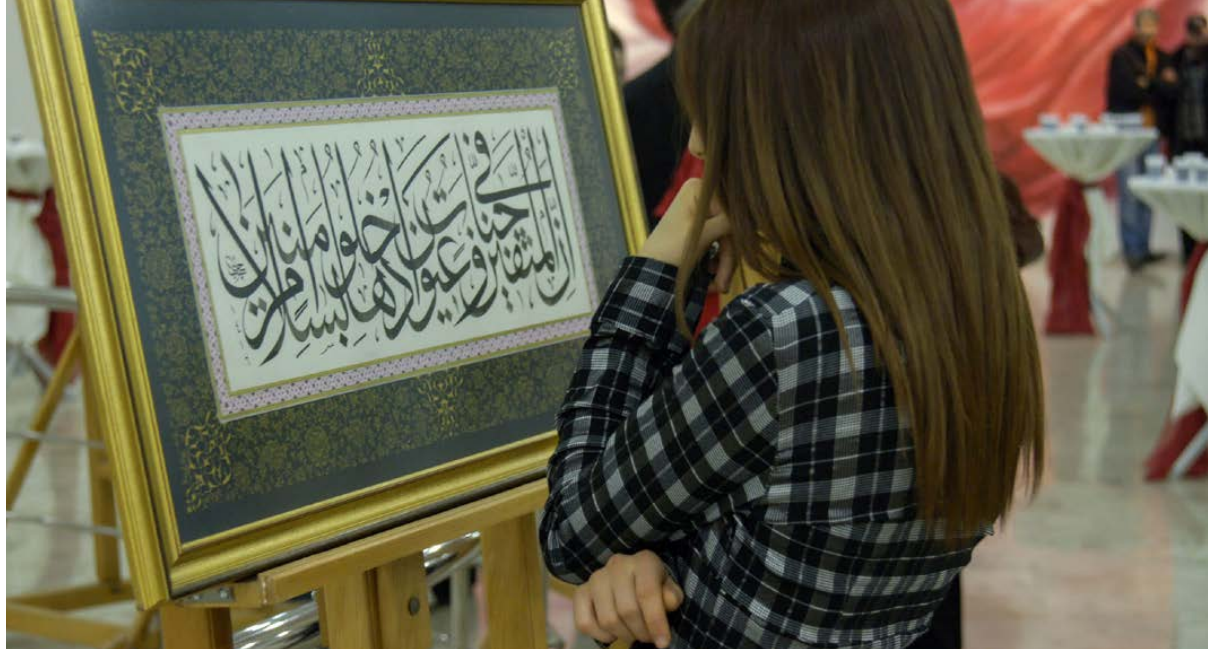 إن المتقين في جنات وعيون ادخلوها بسلام آمنين